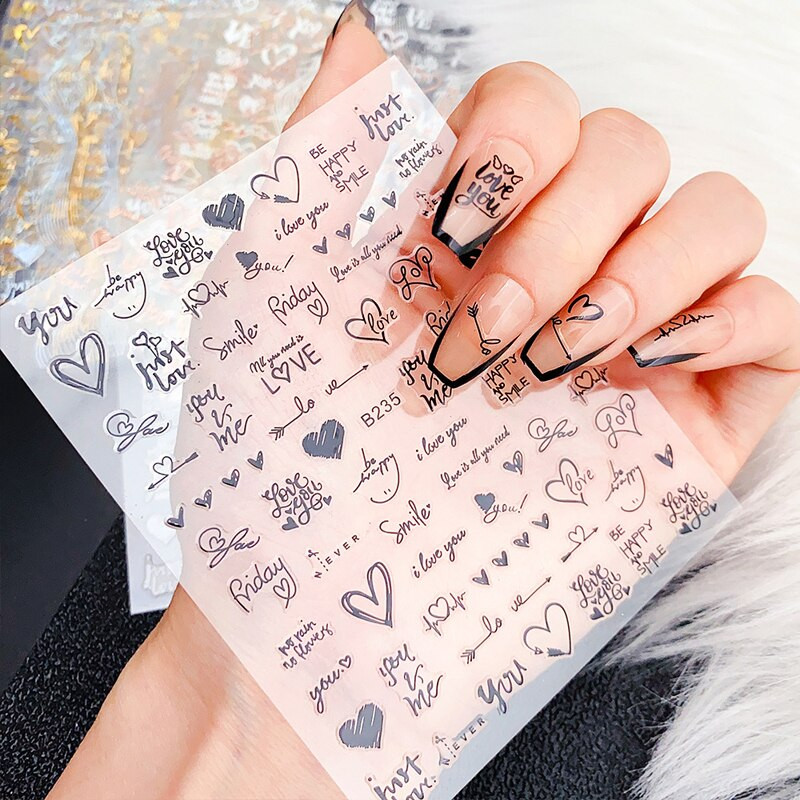 just
love.
BE
HAPPY
AND
SMILE
no rain
no flowers
i love you
Love
you
be
happy
you
you!
Love is all you need
love
you
LOVE
Friday
love
Smile
just
love.
All you need is
LOVE
you
&
me
you
&
me
HAPPY
AND
SMILE
lo ve
B235
i love you
LOVE
Love is all you need
be
happy
love
be
happy
Love
you
Love
you
Smile
you!
BE
HAPPY
AND
SMILE
NEVER
i love you
Friday
lo ve
Love
you
no rain
no flowers
you
&
me
you
you
NEVER
just
love.